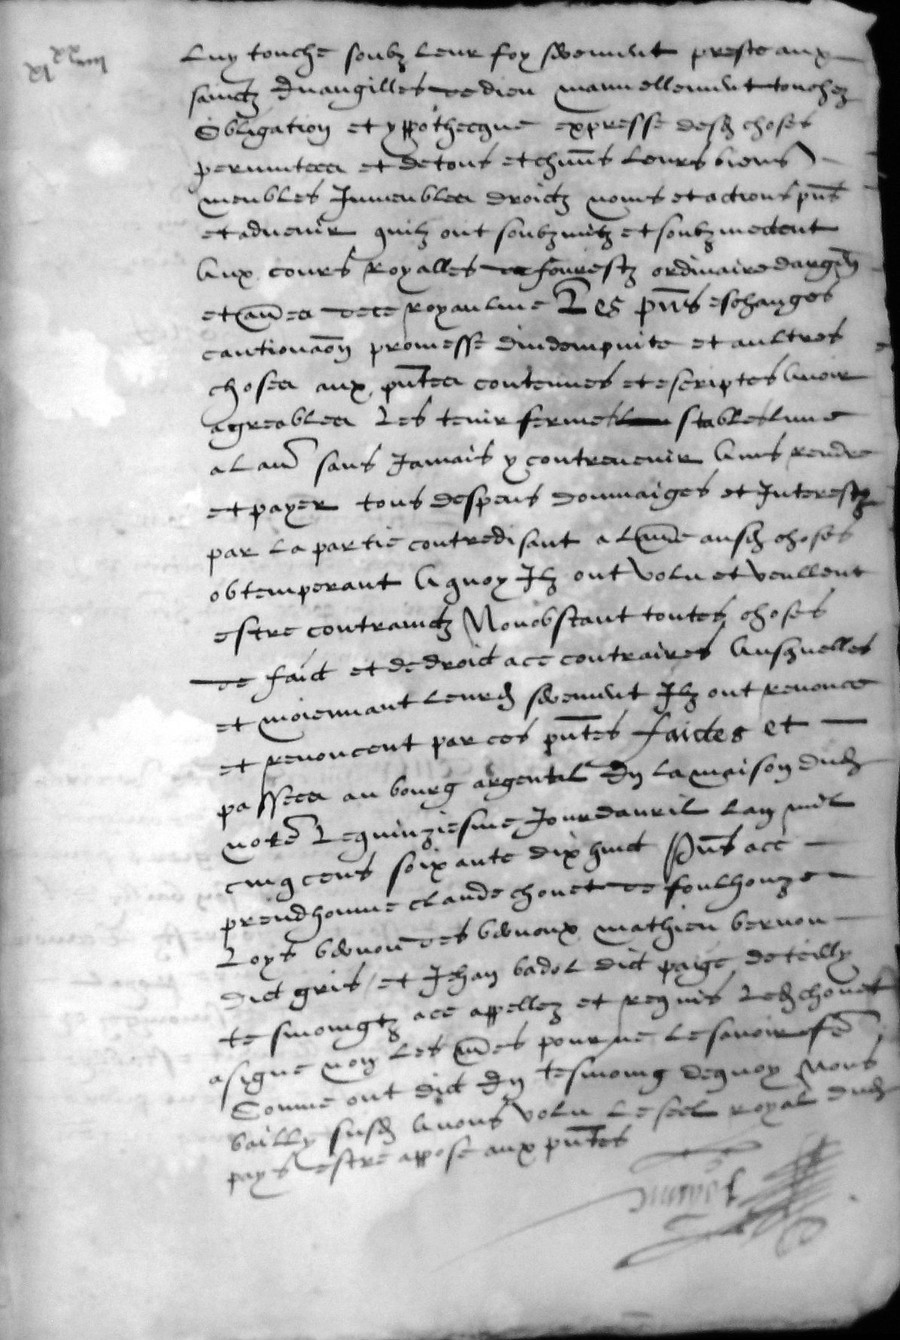 luy touche soubz leur foy serement preste aux
sainctz Evangilles de dieu manuellement touchez
Obligation et yppothecque expresse desd choses
permutees et de tous et chūns leurs biens
meubles Immeubles droictz noms et actions pn̄s
et advenir quilz ont soubzmitz et soubzmectent
Aux cours Royalles de fourestz ordinaire
et aūes de ce royaulme Les pn̄s eschanges
cautionaōn promesse dindempnite et aultres
choses aux pn̄tes contenues et escriptes Avoir
agreables les tenir fermes stables lune
a lau̅ sans Jamais y contrevenir Ains rendre
et payer tous despens dommaiges et Interestz
par la partie contredisant a lau̅e ausd choses
obtemperant A quoy Ilz ont volu et veullent
estre contrainctz Nonobstant toutes choses
de faict et de droict a ce contraires Ausquelles
et moiennant leurd serement Ilz ont renonce
et renoncent par ces pn̄tes faictes et
passees au bourg argental En la maison dud
not̄e Le quinziesme Jour davril Lan mil
cinq cens soixante dix huict Pn̄s a ce
preudhomme claude chovet de foulhouze
Loys des mathieu vernon
dict gris et Jehan badol dict paige de teilly
tesmoingtz a ce appellez et requis Led chovet
a signe non les au̅es pour ne le savoir fē
Comme ont dict En tesmoing dequoy Nous
bailly susd Avons volu le seel royal dud
pays estre appose aux pn̄tes